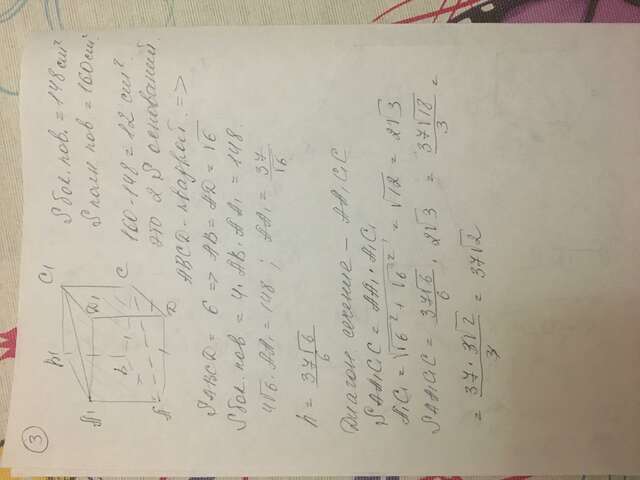 ③
B1
C1
A1
D1
B
C
A
D
S бок. пов. = 148 см²
S полн. пов = 160 см²
160-148 = 12 см²
это 2 S оснований.
ABCD - квадрат. =>
SABCD = 6 => AB = AD = √6
S бок. пов = 4 · AB · AA1 = 148.
4√6 · AA1 = 148 ; AA1 = 37/√6
h = 37√6/6
Диагон сечение - AA1C1C
SAA1C1C = AA1 · A1C1
A1C1 = √(√6² + √6²) = √12 = 2√3
SAA1C1C = 37√6/6 · 2√3 = 37√18/3 =
= 37 · 3√2/3 = 37√2